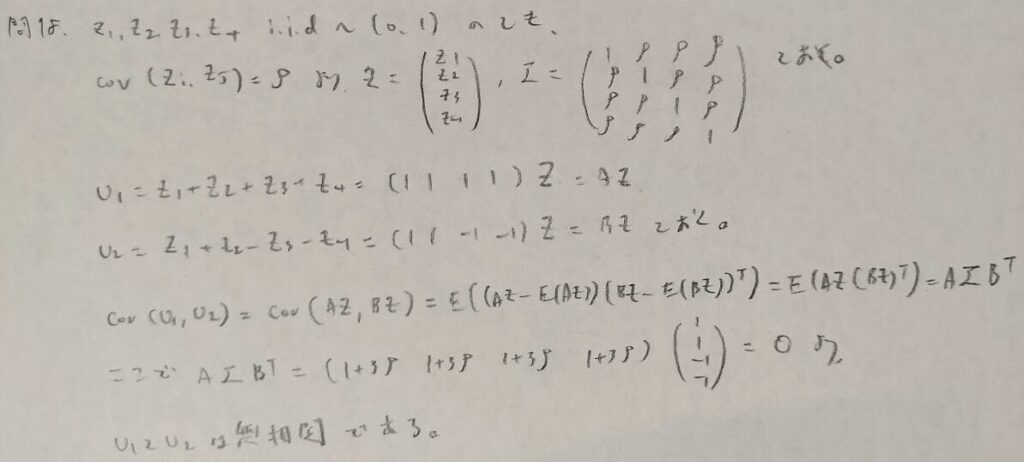 問18. Z1, Z2, Z3, Z4 i.i.d ~ (0, 1) のとき、
cov (Zi, Zj) = ρ より Z = (Z1 Z2 Z3 Z4), Σ = (1 ρ ρ ρ ρ 1 ρ ρ ρ ρ 1 ρ ρ ρ ρ 1) とおく。
U1 = Z1 + Z2 + Z3 + Z4 = (1 1 1 1) Z = AZ
U2 = Z1 + Z2 - Z3 - Z4 = (1 1 -1 -1) Z = BZ とおく。
Cov (U1, U2) = Cov (AZ, BZ) = E((AZ - E(AZ))(BZ - E(BZ))^T) = E(AZ(BZ)^T) = AΣB^T
ここで AΣB^T = (1+3ρ 1+3ρ 1+3ρ 1+3ρ) (1 1 -1 -1) = 0 より
U1とU2は無相関である。